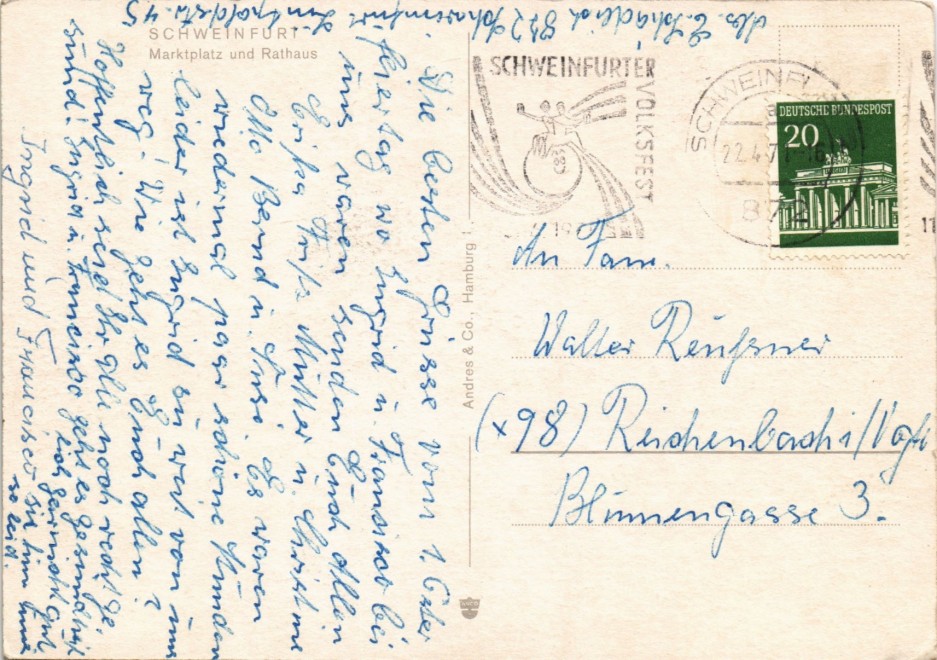 SCHWEINFURT
Marktplatz und Rathaus
Abs. E. Schädlich 872 Schweinfurt
45
Die besten Grüsse vom 1. Oster
feiertag wo Ingrid u. Franzisco bei
uns waren senden Euch Allen
Erika Fritz Mutter u. Christine
Otto Bernd u. Susi. Es waren
wiedermal paar schöne Stunden
leider ist Ingrid zu weit von uns
weg. Wie geht es Euch allen?
Hoffentlich seid Ihr alle noch recht ge-
sund. Ingrid u. Francisco geht es gesundheit-
lich gut,
so leid.
Ingrid und Francisco
Andres & Co., Hamburg 1
SCHWEINFURTER
VOLKSFEST
SCHWEINFURT
22.4.7
872
DEUTSCHE BUNDESPOST
20
11
An Fam.
Walter Reußner
(x98) Reichenbach i/Vogtl
Blumengasse 3.